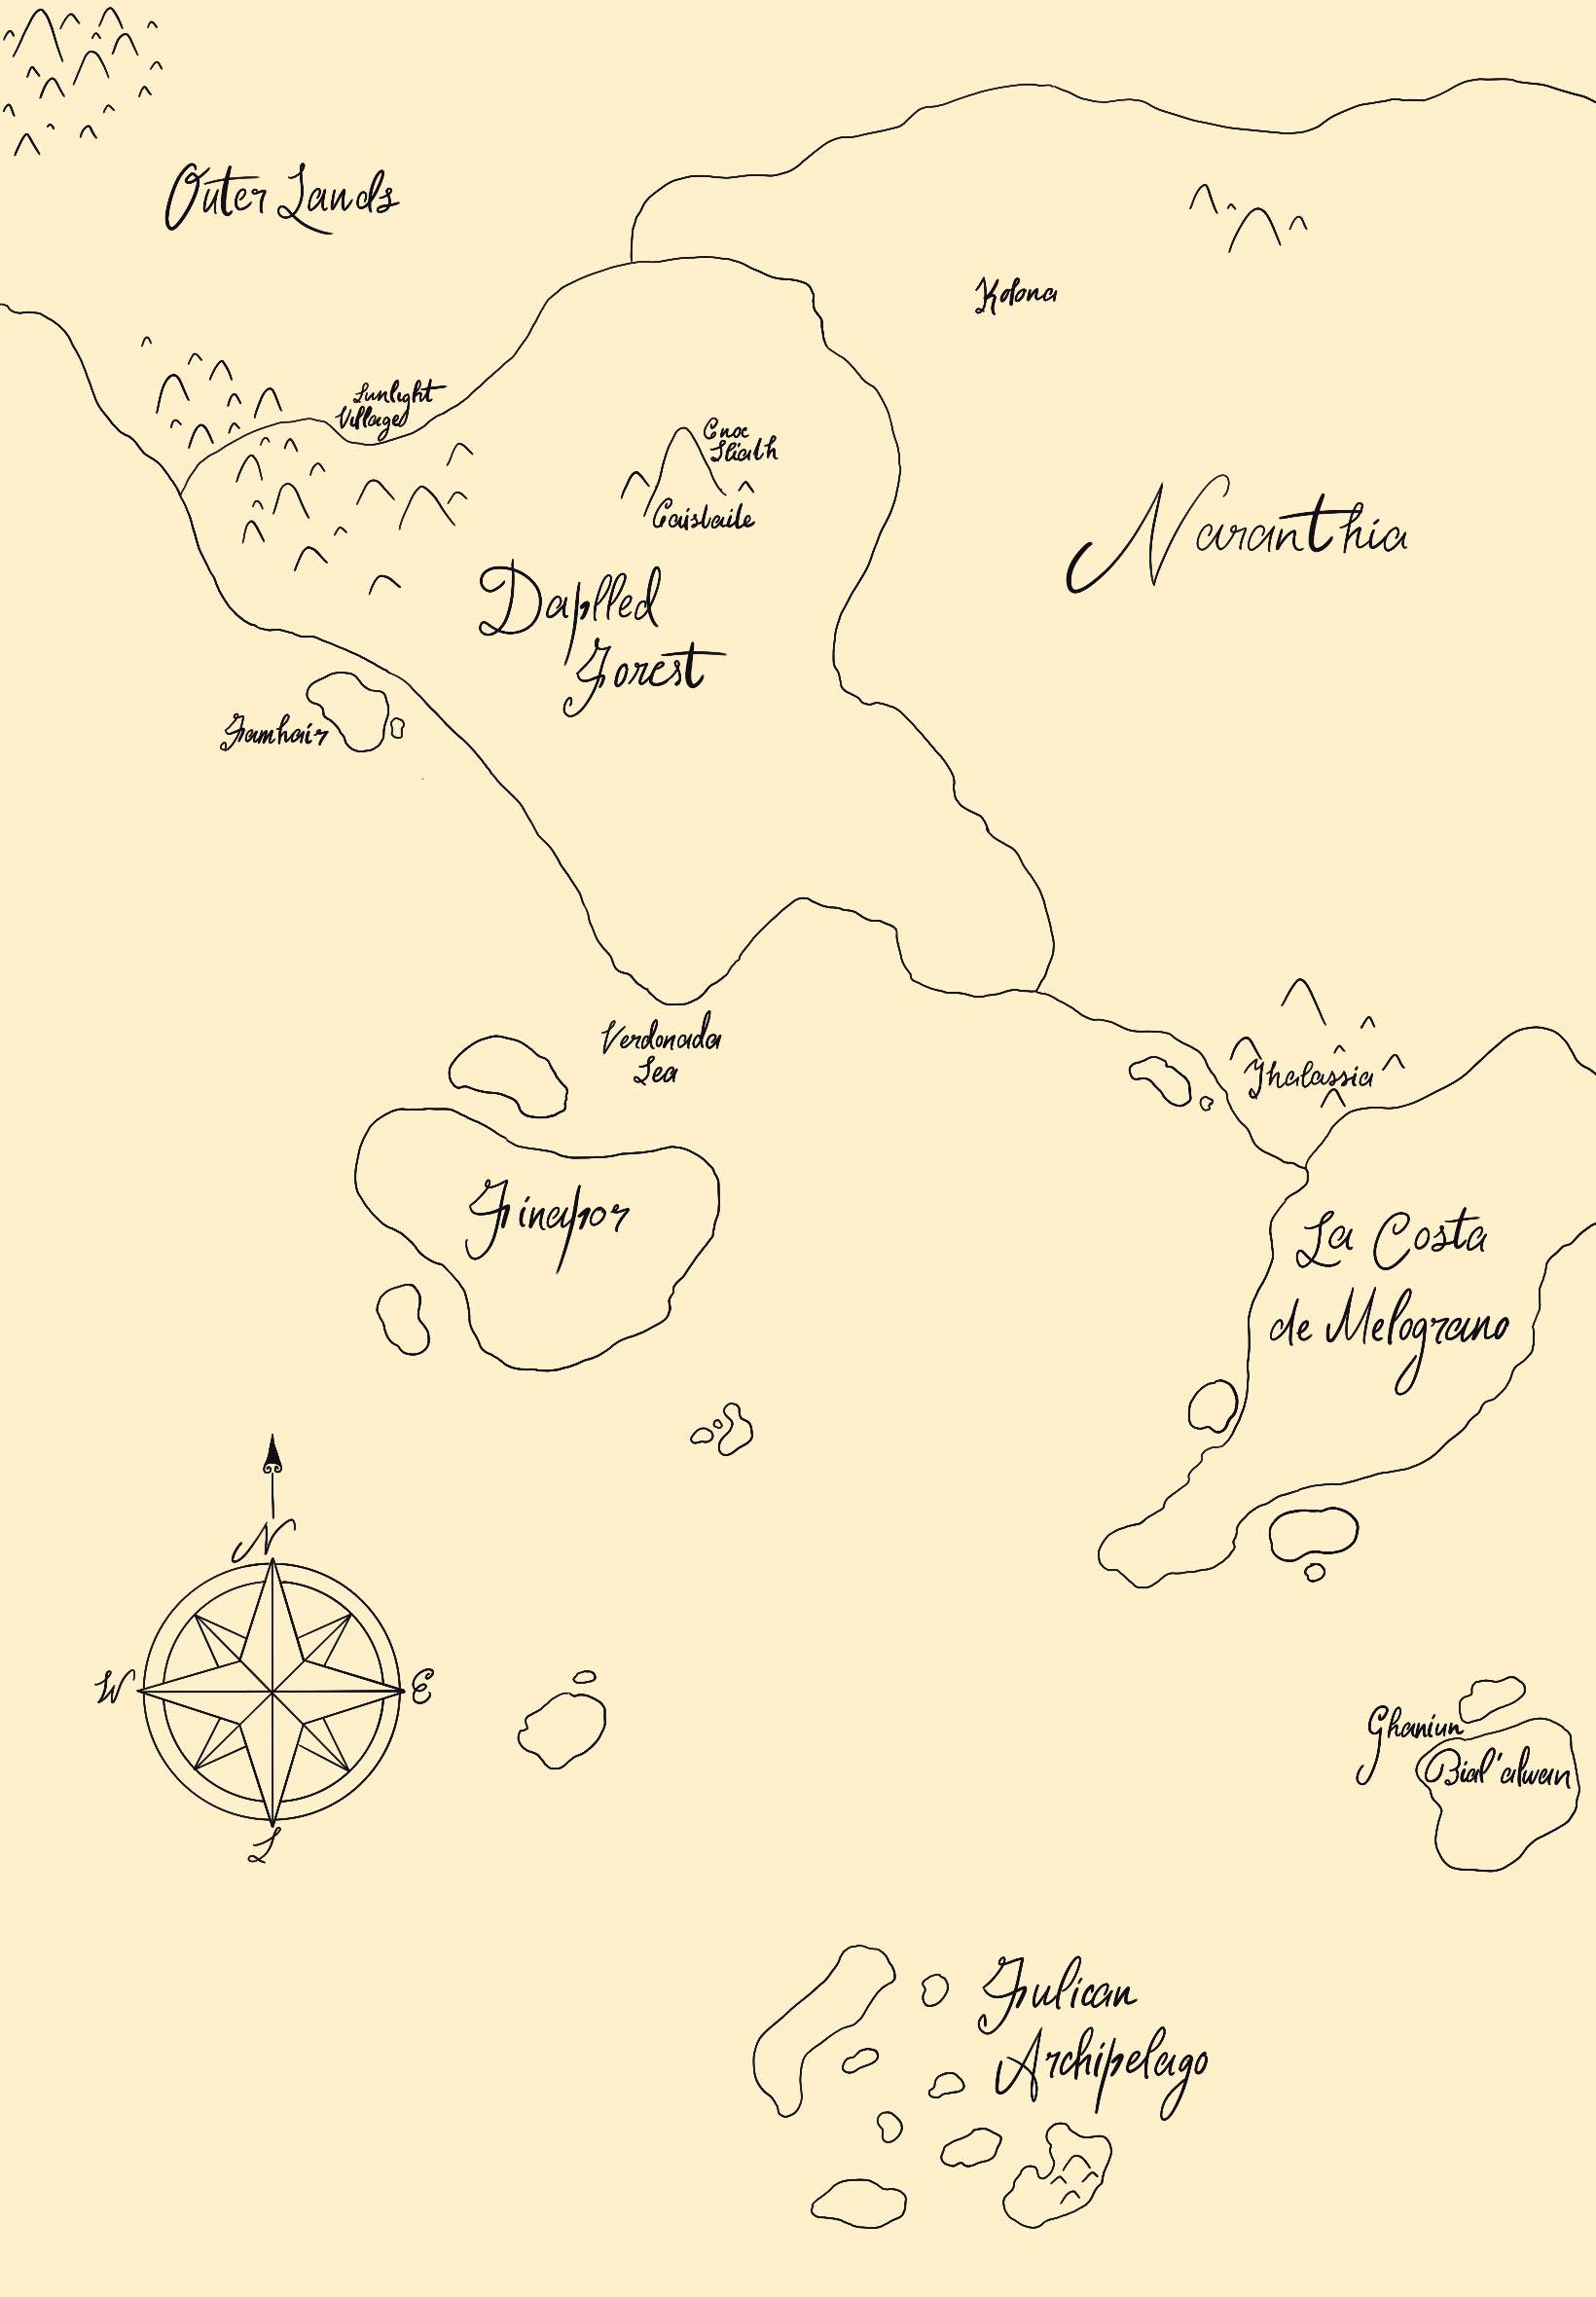 Outer Lands
Kolona
Sunlight
Village
Cnoc
Naranthia
Daplled
Forest
Famhair
Verdonada
Sea
Thalassia
Finapor
La Costa
de Melograno
N
W
E
S
Ghaniun
Bial'alwan
Fulican
Archipelago